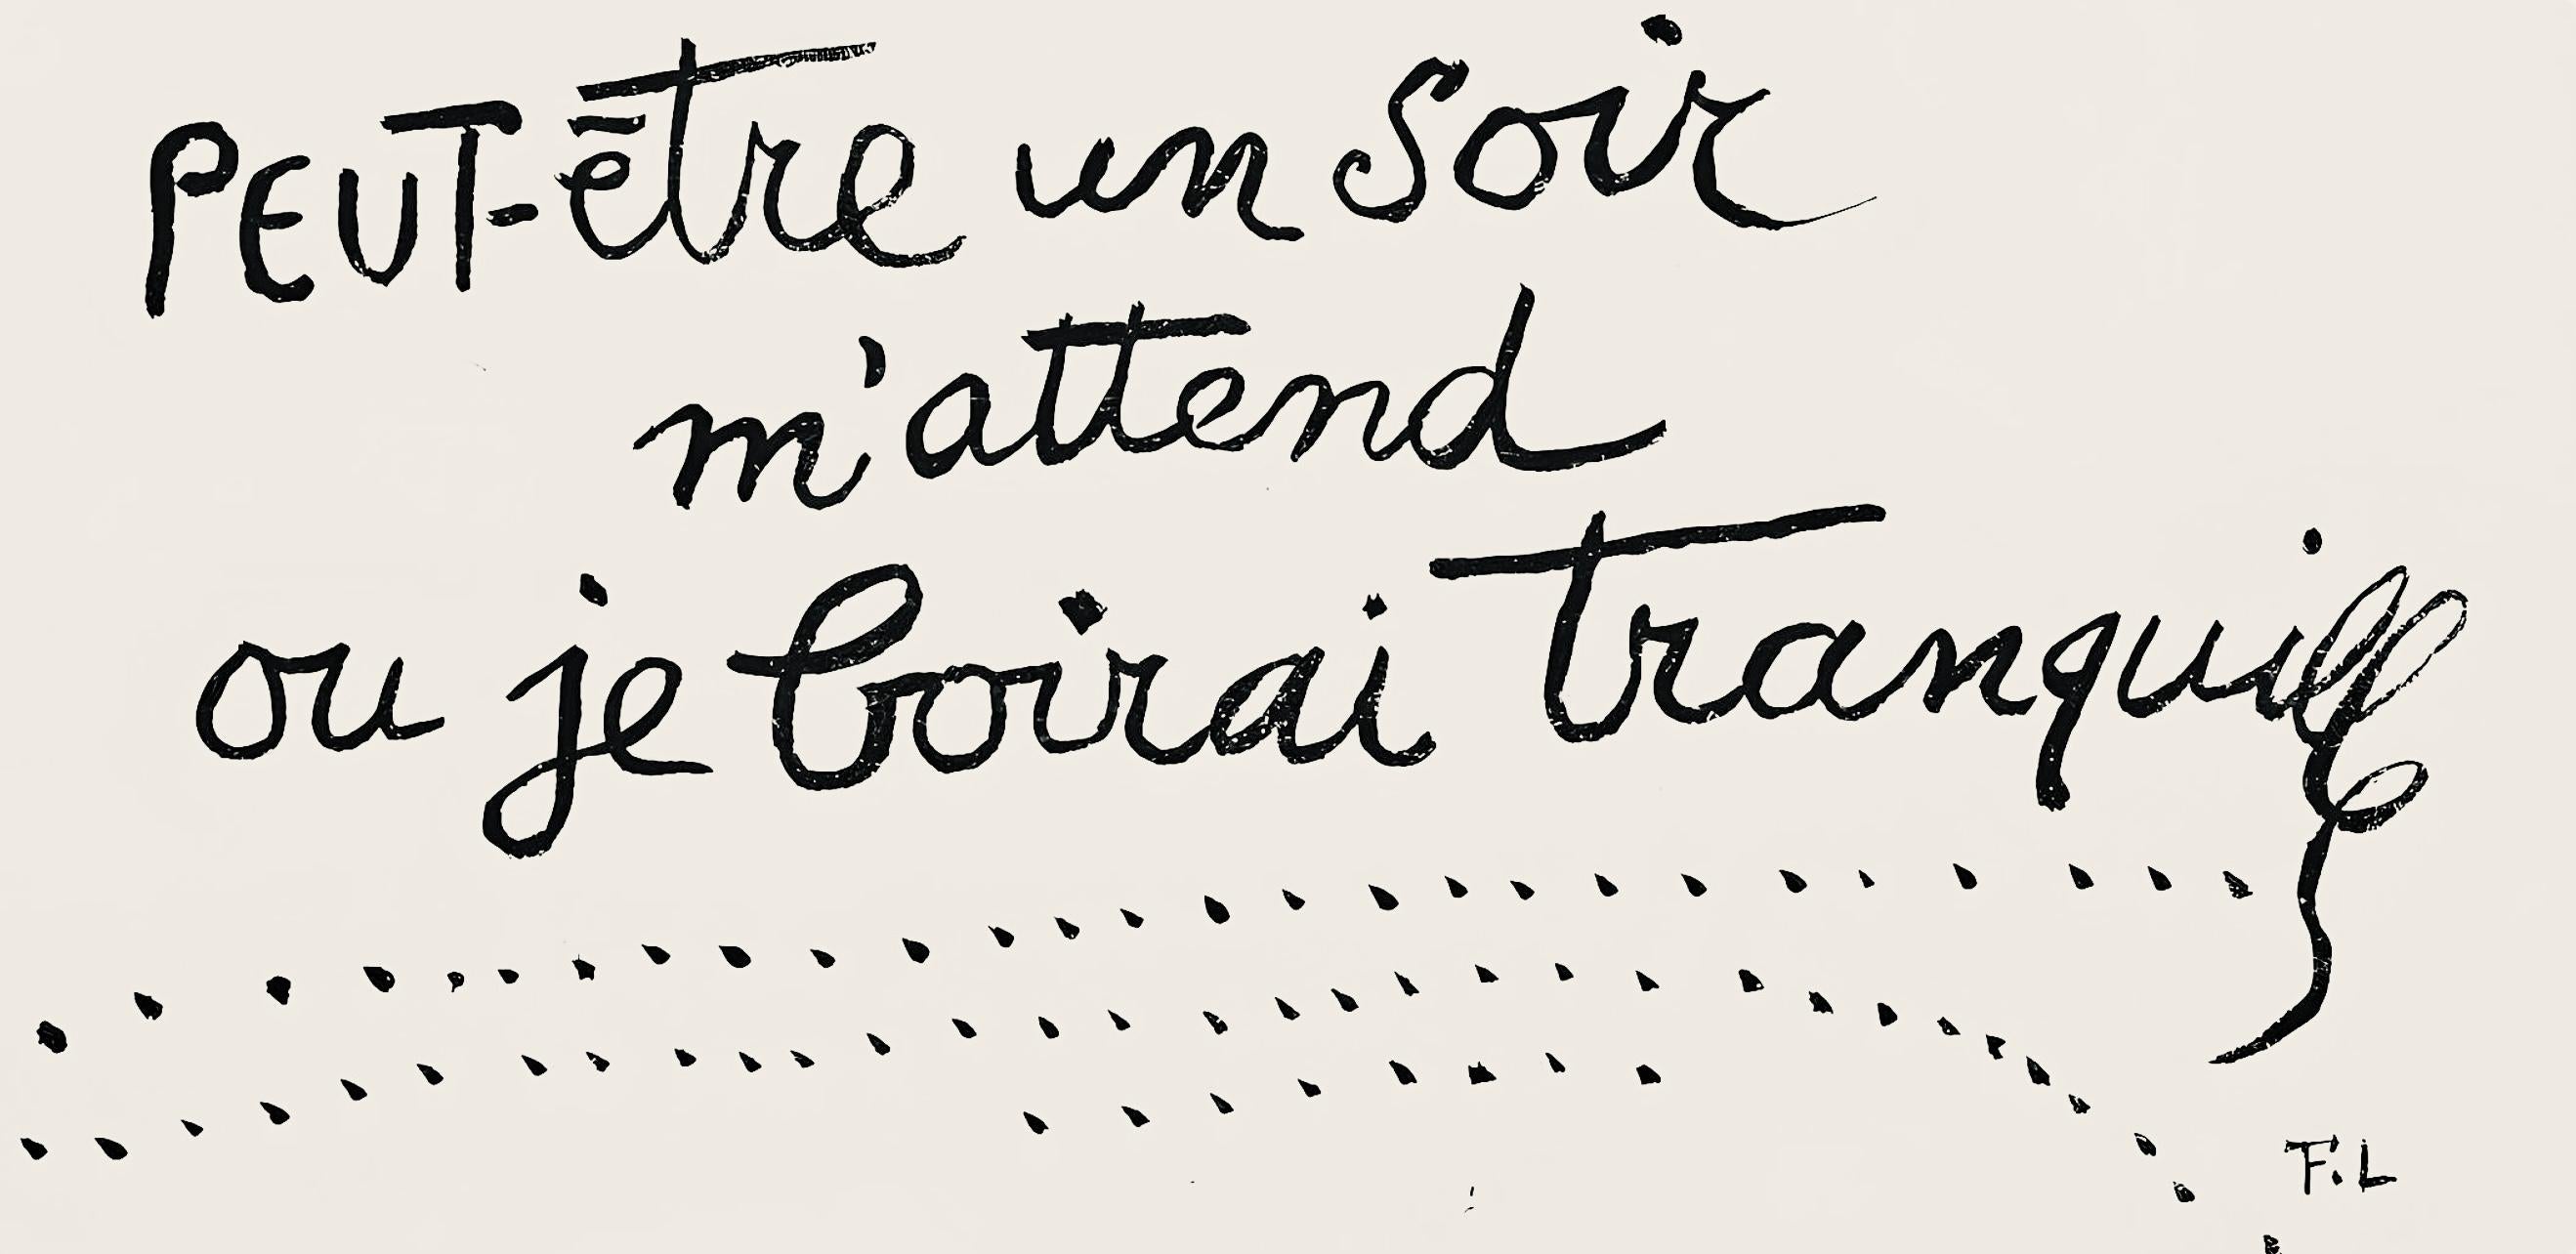 PEUT-être un soir
m'attend
ou je boirai tranquille
F.L